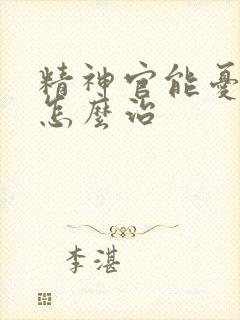 精神官能憂
怎麼治
李湛